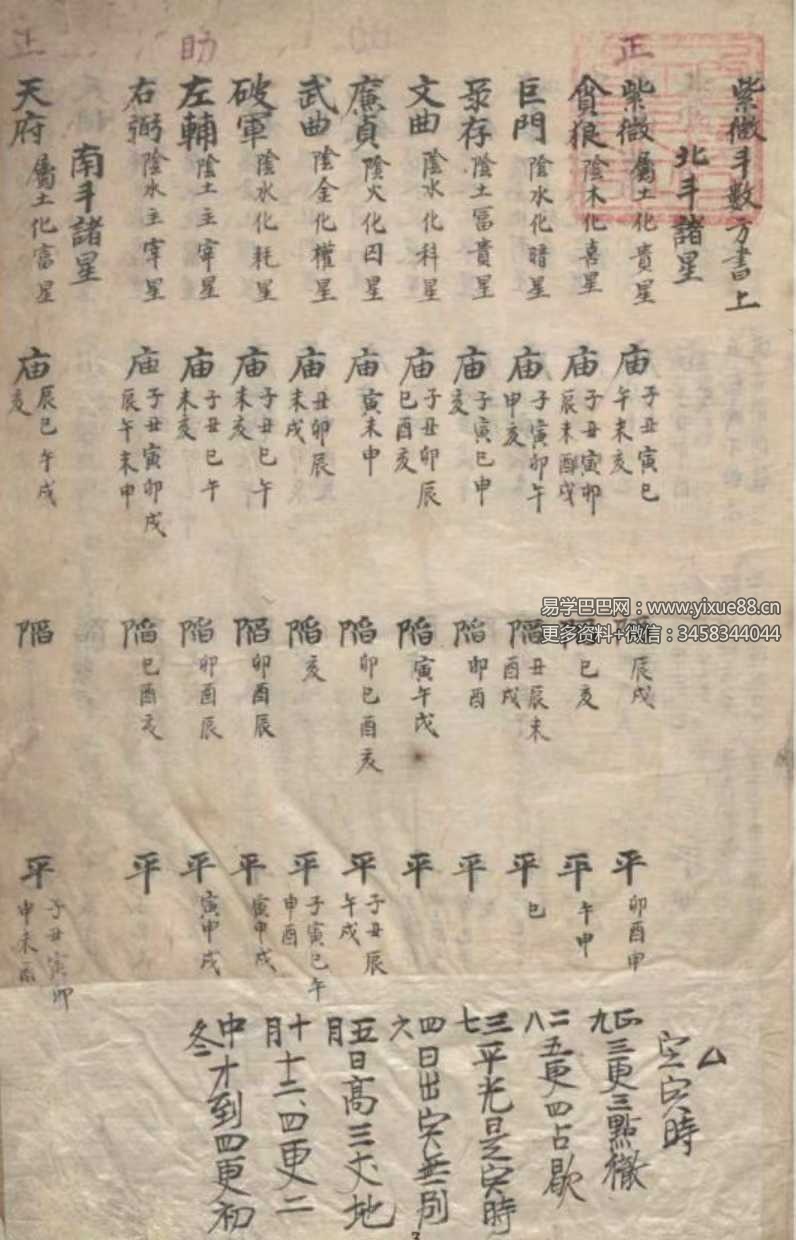 紫微斗數方書上
北斗諸星
正
紫微屬土化貴星 庙子丑寅巳午未亥 陷辰戌 平卯酉申
貪狼陰木化喜星 庙子丑寅卯辰未酉戌 陷巳亥 平午申
巨門陰水化暗星 庙子寅卯午申亥 陷丑辰未酉戌 平巳
录存陰土富貴星 庙子寅巳申亥 陷卯酉 平
文曲陰水化科星 庙子丑卯辰巳酉亥 陷寅午戌 平
廉貞陰火化囚星 庙寅未申 陷卯巳酉亥 平子丑辰午戌
武曲陰金化權星 庙丑卯辰未戌 陷亥 平子寅巳午申酉
破軍陰水化耗星 庙子丑巳午未亥 陷卯酉辰 平寅申戌
助
左輔陰土主宰星 庙子丑巳午未亥 陷卯酉辰 平寅申戌
右弼陰水主宰星 庙子丑寅卯戌辰午未申 陷巳酉亥 平
南斗諸星
天府屬土化富星 庙辰巳午戌亥 陷 平子丑寅卯申未酉
定寅時
正九三更三點徹
二八五更四占歇
三七平光是寅時
四六日出寅無別
五月日高三丈地
十月十二、四更二
中冬才到四更初
易学巴巴网：www.yixue88.cn
更多资料+微信：3458344044
3